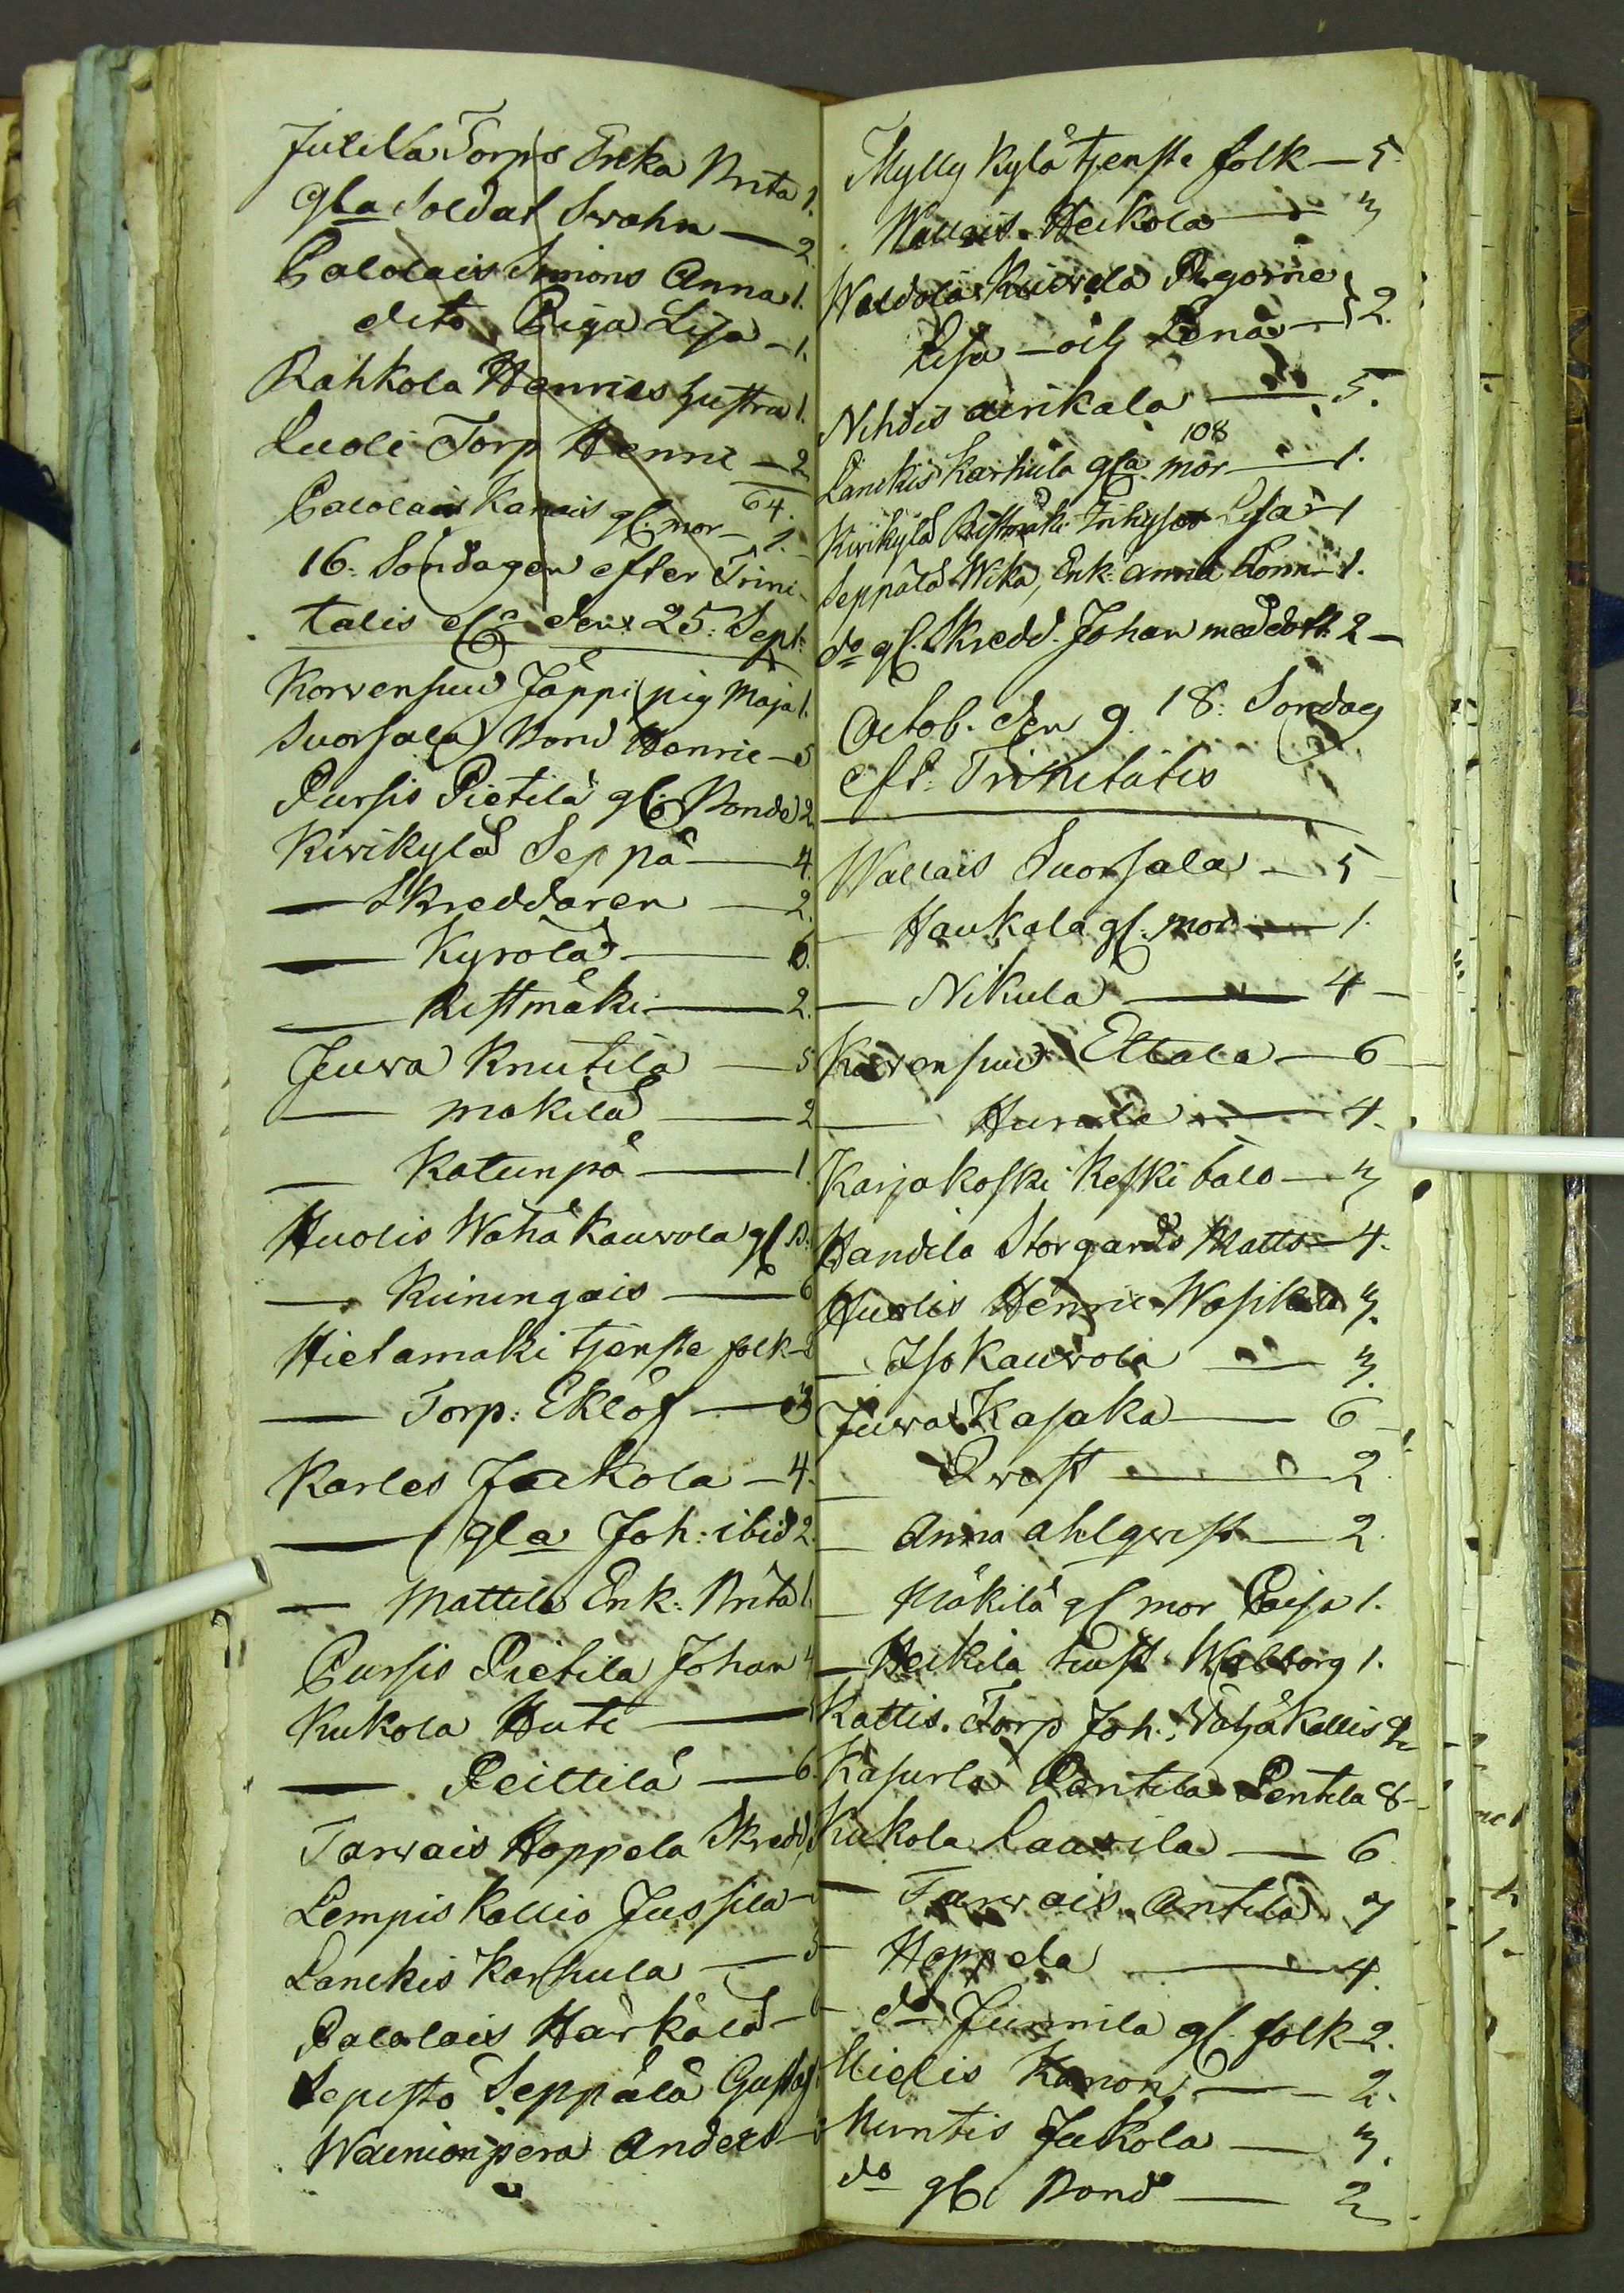 Julila Torps Enka Brita 1.
gla Soldat Swahn — 2.
Palolais Simons Anna 1.
dito Piga Lisa — 1.
Rahkola Henrics hustru 1.
Luoli Torp Henric — 2
64.
Palolais Kanais gl. mor — 1.
16. Söndagen efter Trini-
tatis den 25. Sept.
Korvensuu Jäppi pig Maja 1.
Suorsala Bond Henric — 5
Pursis Pietilä gl. Bonde 2
Kivikylä Seppä — 4.
— Skreddaren — 2.
— Kyrölä — 6.
— Ristmäki — 2.
Juva Knutila — 5
— mäkilä — 2
— Katunpä — 1.
Huolis Wähä Kauvola gl. B.
— Kuningais — 6
Hietamäki tjenste folk —
— Torp: Eklöf — 3
Karles Jaakola — 4.
— gla Joh: ibid 2.
— Mattila Enk: Brita 1.
Pursis Pietila Johan 4
Kukola Huti —
— Peittilä — 6.
Tarvais Hoppela Skredd.
Lempis Kallio Jussila —
Lanckis Karhula — 5
Palolais Härkälä —
Sepistö Seppälä Gustaf
Wainionperä Anders —
Mylly Kylä tjenste folk — 5.
Wallais Heikola — 3
Waldola Kuvela Pigorne
Lisa — och Lena — 2.
Nihdis aerikala — 5.
108
Lanckis Karhula gla mor — 1.
Kivikylä Ristmäki Inhyses Lisa — 1
Seppälä Wika, Enk: Anna Tom — 1.
do gl. Skredd. Johan med dott. 2 —
Octob. den 9. 18. Söndag
eft: Trinitatis
Wallais Suorsala — 5
— Haukala gl. mor — 1.
— Nikula — 4 —
Korvensuu Ellala — 6
— Hurula — 4.
Karjakoski Keskitalo — 3
Handela Storgårds Matts — 4.
Huolis Henric Wasikala 3.
— Iso Kauvola — 3.
Juva Kasaka — 6
— Qvast — 2
— Anna Ahlqvist — 2.
— Mäkilä gl mor Caisa 1.
— Heikilä hust. Walborg 1.
Kallis. Torp Joh. Wähä Kallis 2
Kasurla Pentila Pentila 8 —
Kukola Lauvila — 6
— Tarvais Antila 7
— Hoppela — 4.
— do Junnila gl. folk — 2.
Mielis Kanon — 2.
Muntis Jakola — 3.
do gl Bond — 2